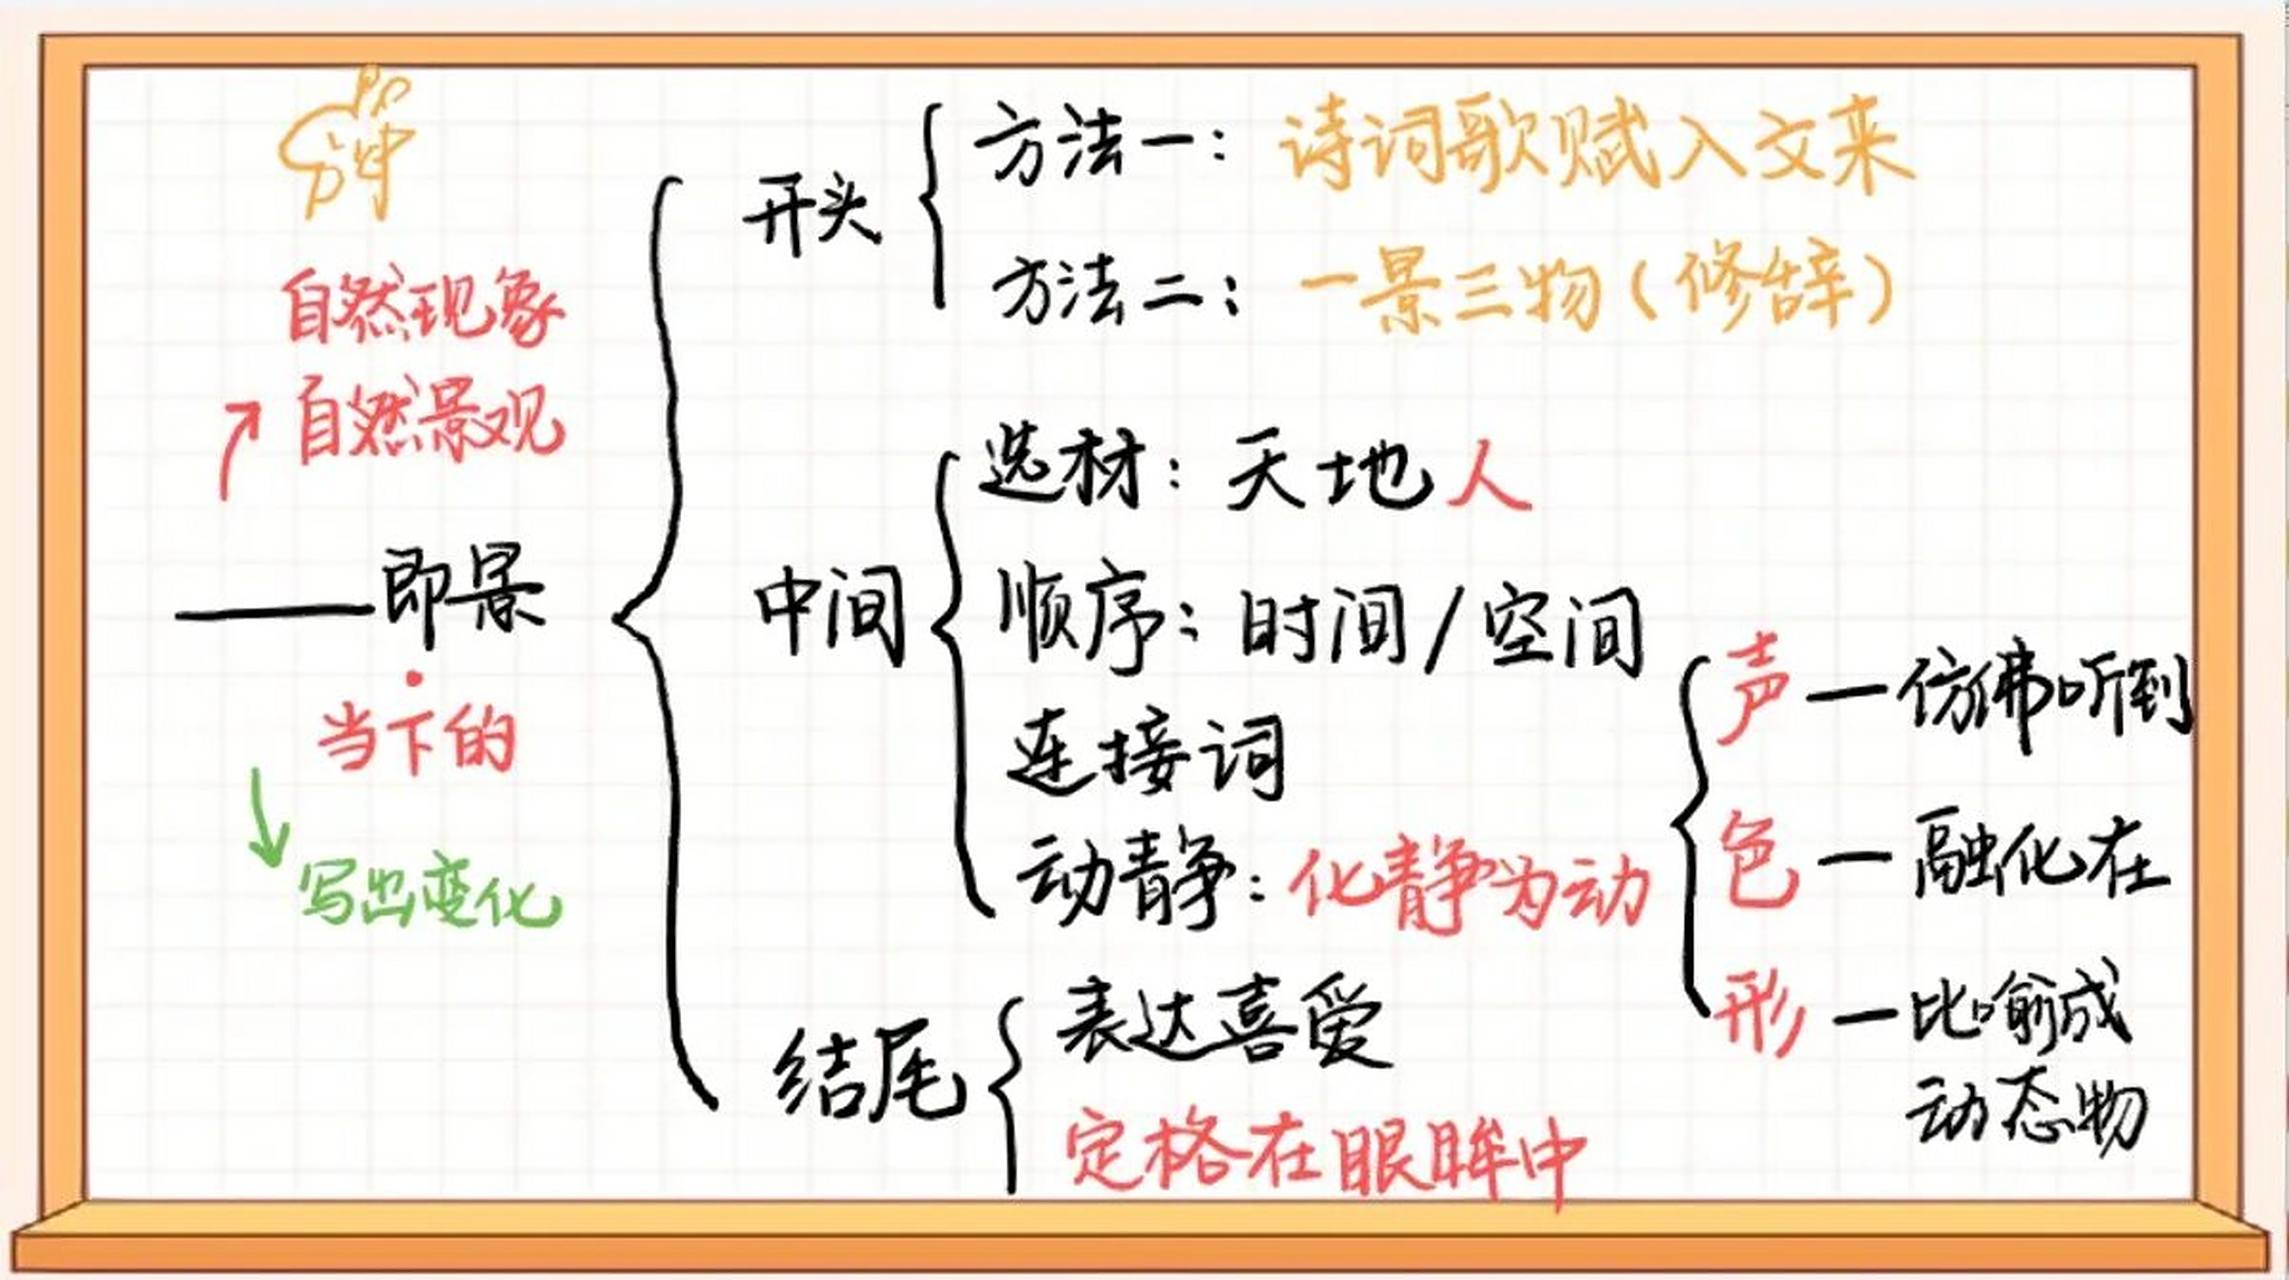 自然现象
自然景观
——即景
当下的
写出变化
开头
方法一：诗词歌赋入文来
方法二：一景三物（修辞）
中间
选材：天地人
顺序：时间/空间
连接词
动静：化静为动
声—仿佛听到
色—融化在
形—比喻成
动态物
结尾
表达喜爱
定格在眼眸中